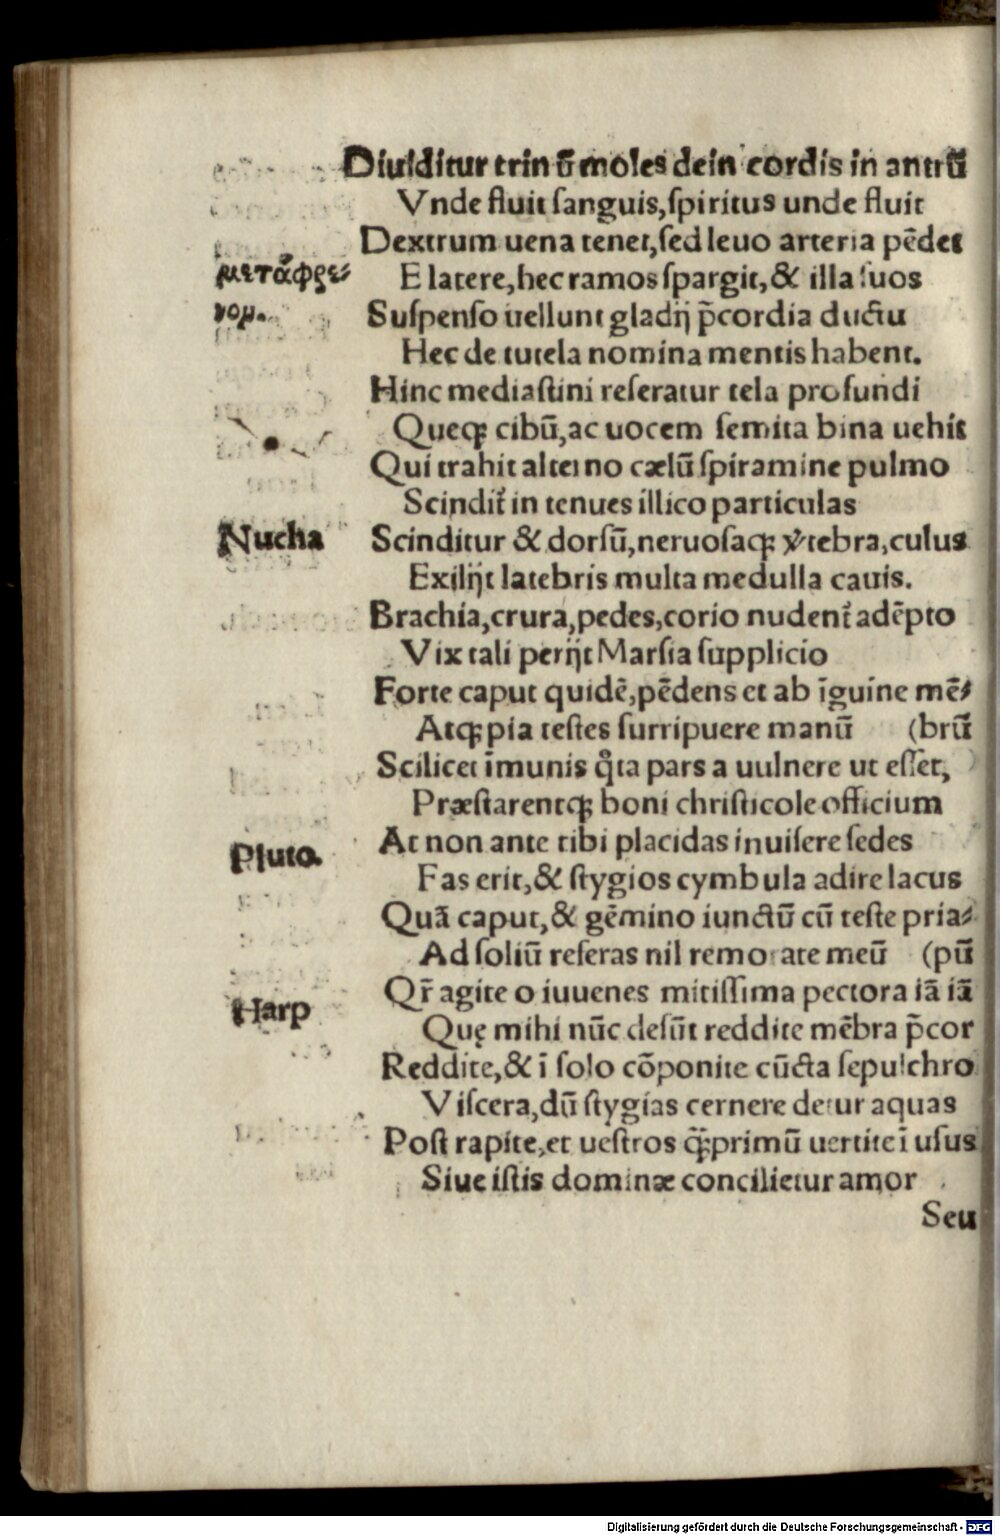 Diuiditur trinũ moles dein cordis in antrũ
Vnde fluit ſanguis, ſpiritus unde fluit
Dextrum uena tenet, ſed leuo arteria pẽdet
μετάφρε⸗
E latere, hec ramos ſpargit, & illa ſuos
νομ.
Suſpenſo uellunt gladij p̃cordia ductu
Hec de tutela nomina mentis habent.
Hinc mediaſtini reſeratur tela profundi
Queqꝫ cibũ, ac uocem ſemita bina uehit
Qui trahit alterno cælũ ſpiramine pulmo
Scindit᷑ in tenues illico particulas
Nucha
Scinditur & dorſũ, neruoſaqꝫ v̓tebra, cuius
Exilijt latebris multa medulla cauis.
Brachia, crura, pedes, corio nudent᷑ adẽpto
Vix tali perijt Marſia ſupplicio
Forte caput quidẽ, pẽdens et ab ĩguine mẽ⸗
Atqꝫ pia teſtes ſurripuere manũ (brũ
Scilicet ĩmunis q̃ta pars a uulnere ut eſſet,
Præſtarentqꝫ boni chriſticole officium
Pluto.
At non ante tibi placidas inuiſere ſedes
Fas erit, & ſtygios cymbula adire lacus
Quã caput, & gẽmino iunctũ cũ teſte pria⸗
Ad ſoliũ referas nil remorate meũ (pũ
Harp
Qr̃ agite o iuuenes mitiſſima pectora iã iã
Quę mihi nũc deſũt reddite mẽbra p̃cor
Reddite, & ĩ ſolo cõponite cũcta ſepulchro
Viſcera, dũ ſtygias cernere detur aquas
Poſt rapite, et ueſtros q̃ꝫprimũ uertite ĩ uſus
Siue iſtis dominæ concilietur amor
Seu
Digitalisierung gefördert durch die Deutsche Forschungsgemeinschaft - DFG